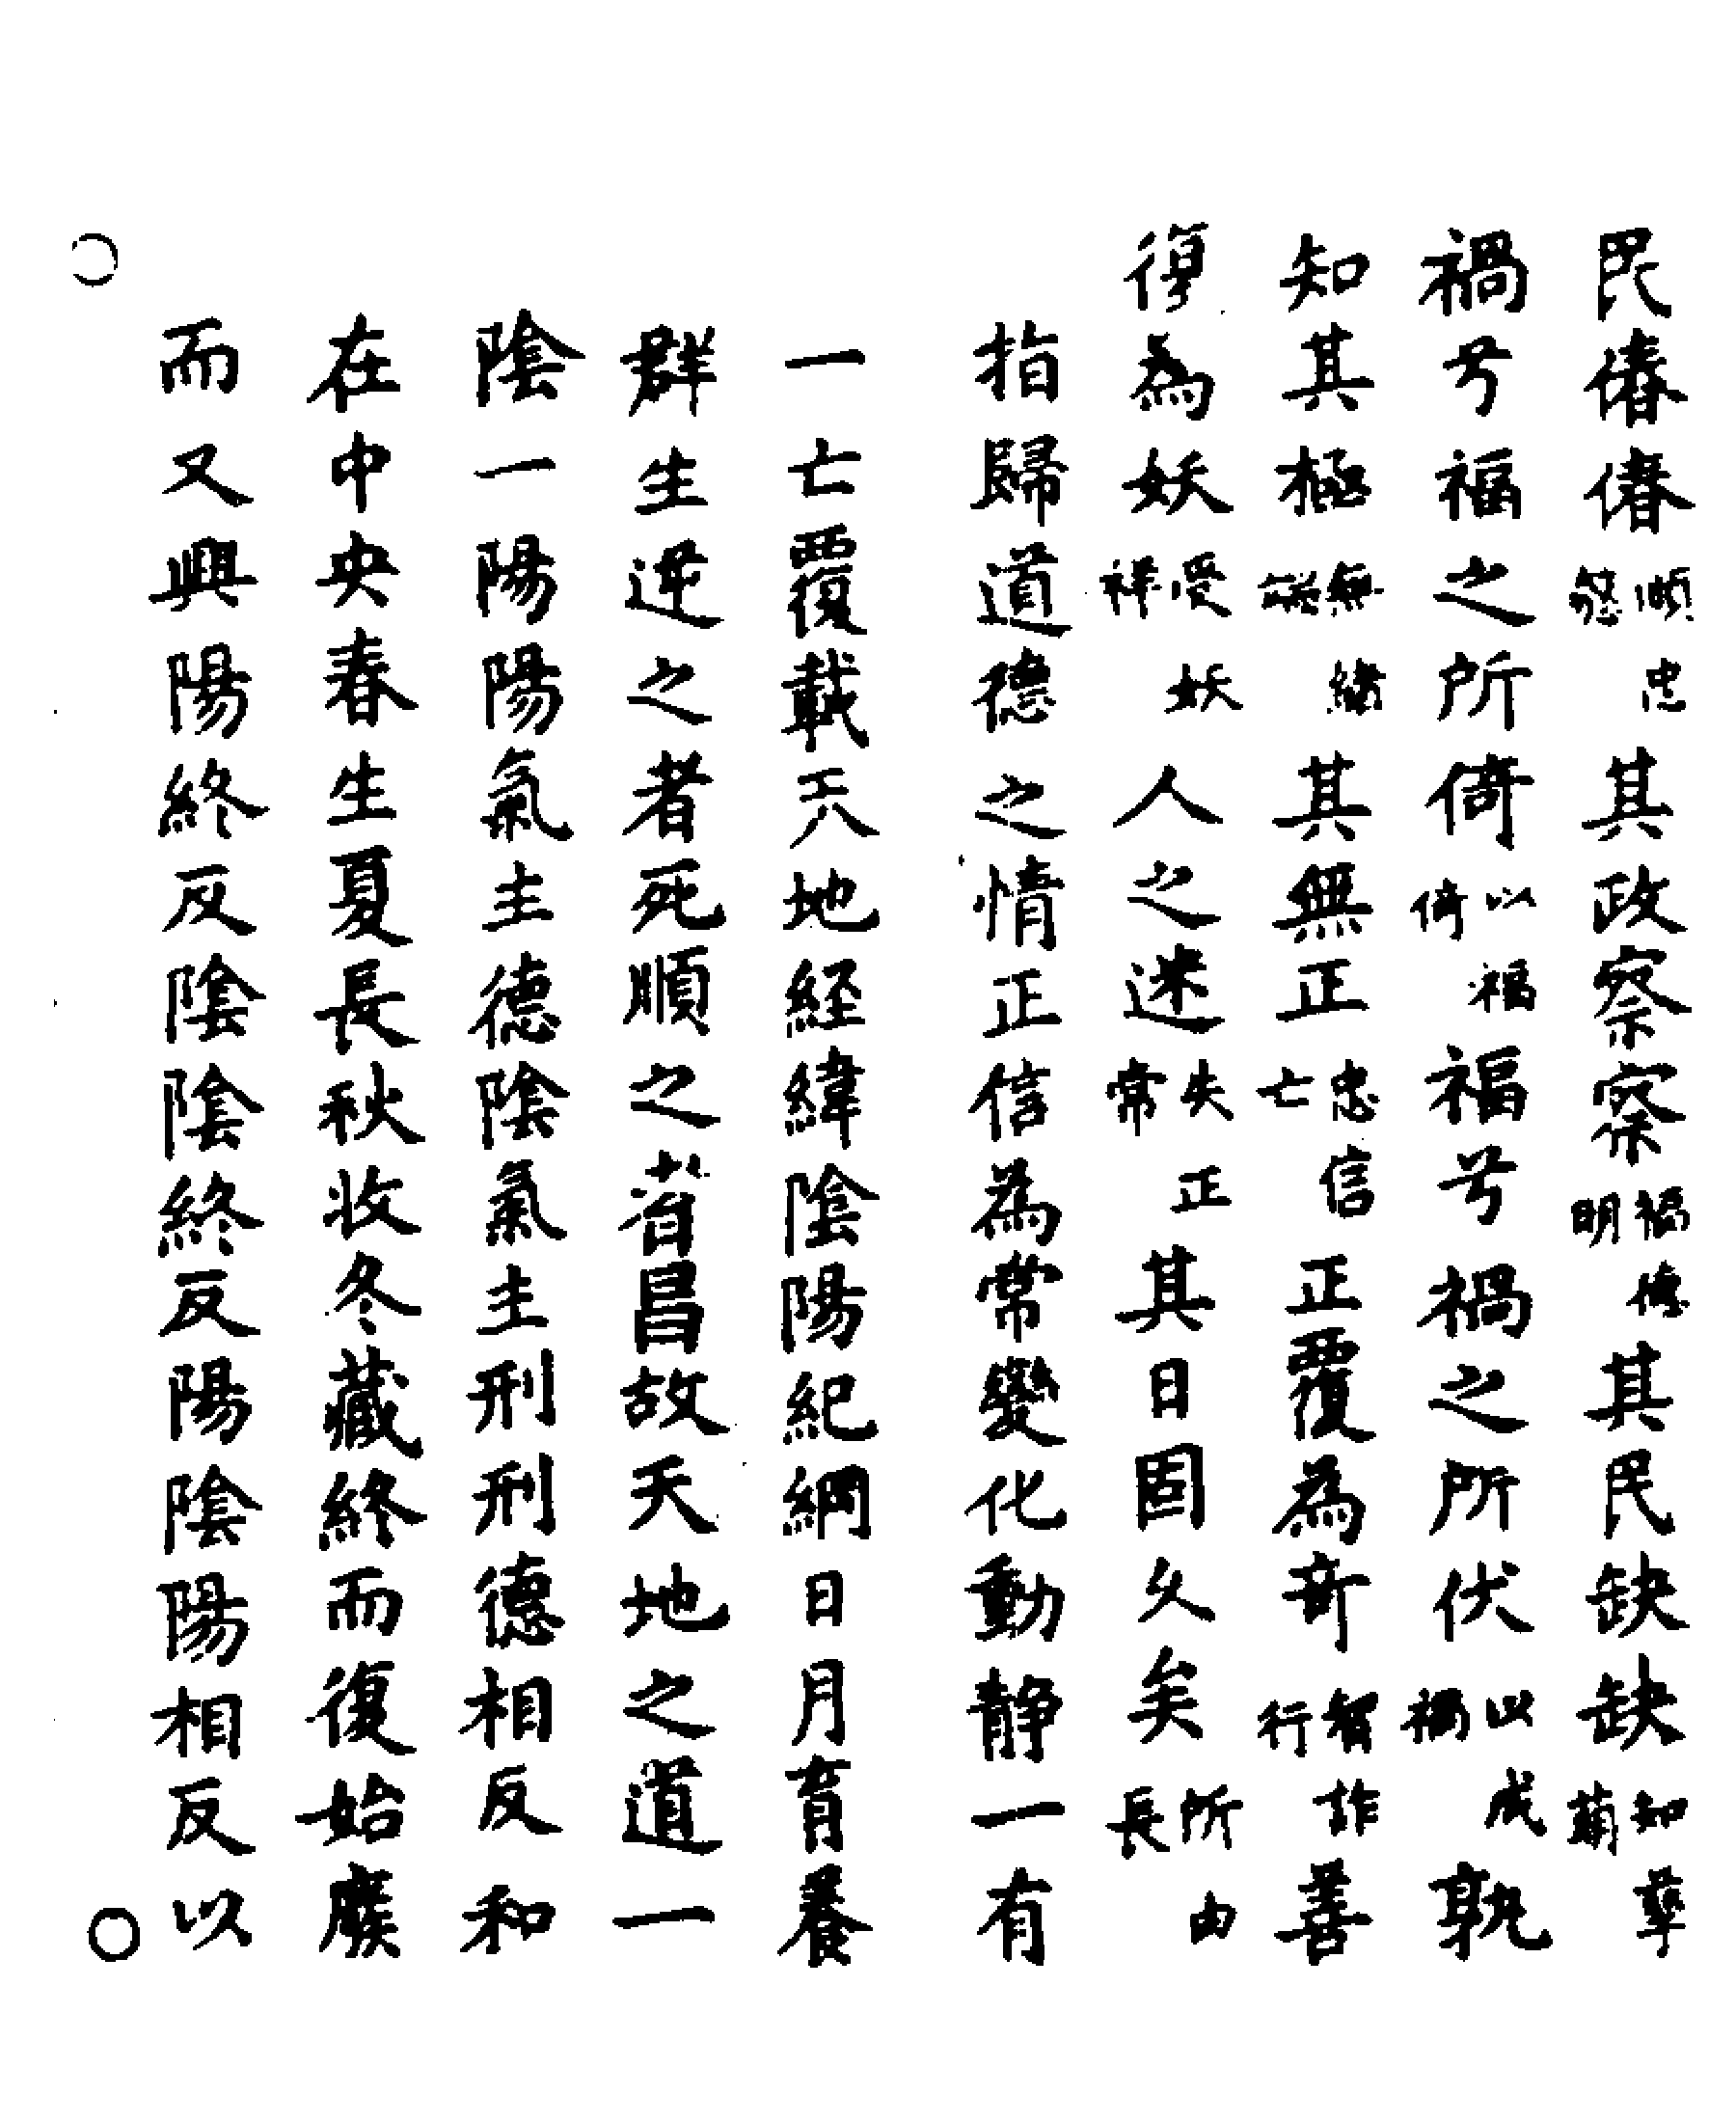 民偆偆順忠㥽其政察察禍德明其民缺缺知孽萠
禍兮福之所倚以福倚福兮禍之所伏以成禍孰
知其極無緒其無正忠信亡正覆為奇智詐行善
復為妖受妖祥人之迷失正常其日固久矣所由長
指歸道德之情正信為常變化動静一有
一亡覆載天地経緯陰陽紀綱日月育養
群生逆之者死順之者昌故天地之道一
陰一陽陽氣主德陰氣主刑刑德相反和
在中央春生夏長秋收冬藏終而復始廢
而又興陽終反陰陰終反陽陰陽相反以